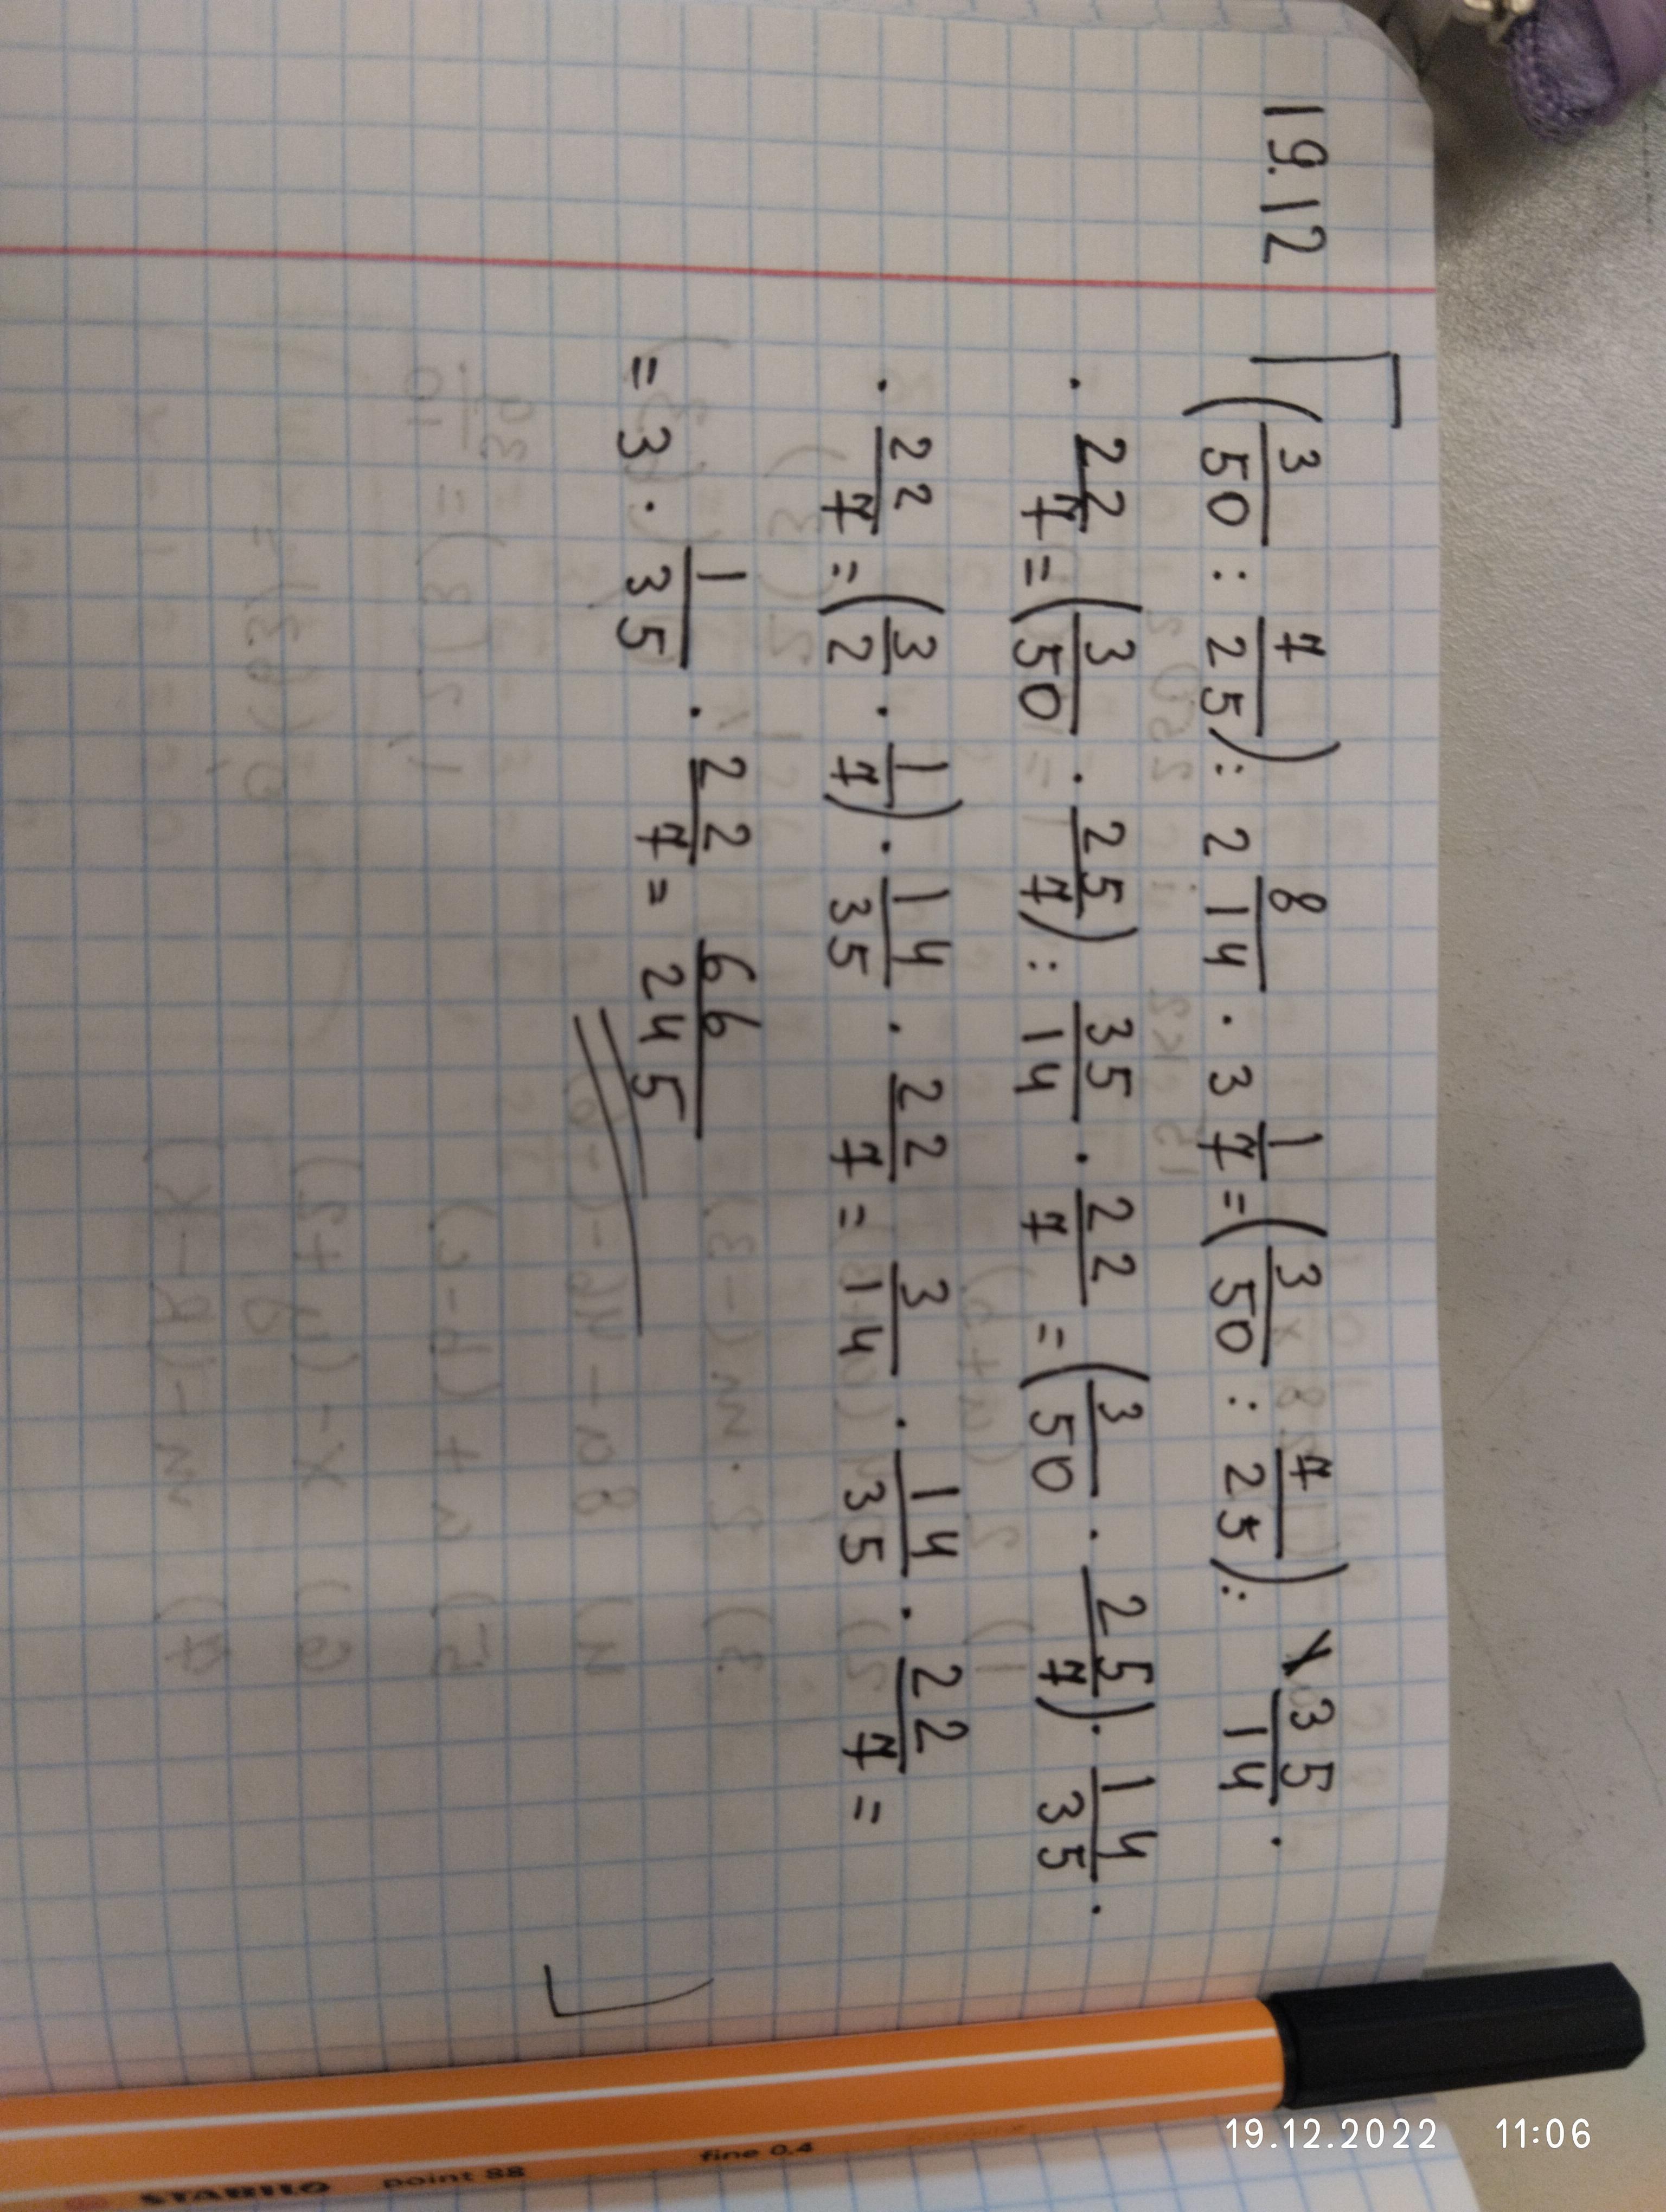 19.12
(3/50 : 7/25) : 2 8/14 · 3 1/7 = (3/50 : 7/25) : 35/14 ·
· 22/7 = (3/50 · 25/7) : 35/14 · 22/7 = (3/50 · 25/7) · 14/35 ·
· 22/7 = (3/2 · 1/7) · 14/35 · 22/7 = 3/14 · 14/35 · 22/7 =
= 3 · 1/35 · 22/7 = 66/245
STABILO point 88 fine 0.4
19.12.2022 11:06